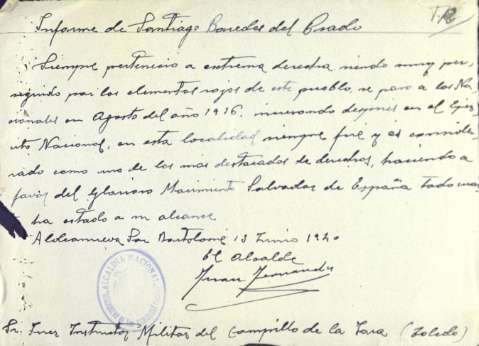 Informe de Santiago Paredes del Prado
Siempre pertenecio a extrema derecha siendo muy per-
seguido por los elementos rojos de este pueblo, se paso a los Na-
cionales en Agosto del año 1936, ingresando despues en el Ejer-
cito Nacional, en esta localidad siempre fue y es conside-
rado como uno de los mas destacados de derechas, haciendo a
favor del Glorioso Movimiento Salvador de España todo cuan
ha estado a su alcance
Aldeanueva San Bartolomé 13 Junio 1940
El Alcalde
Juan Fernandez
ALCALDIA NACIONAL
Sr. Juez Instructor Militar del Campillo de la Jara (Toledo)